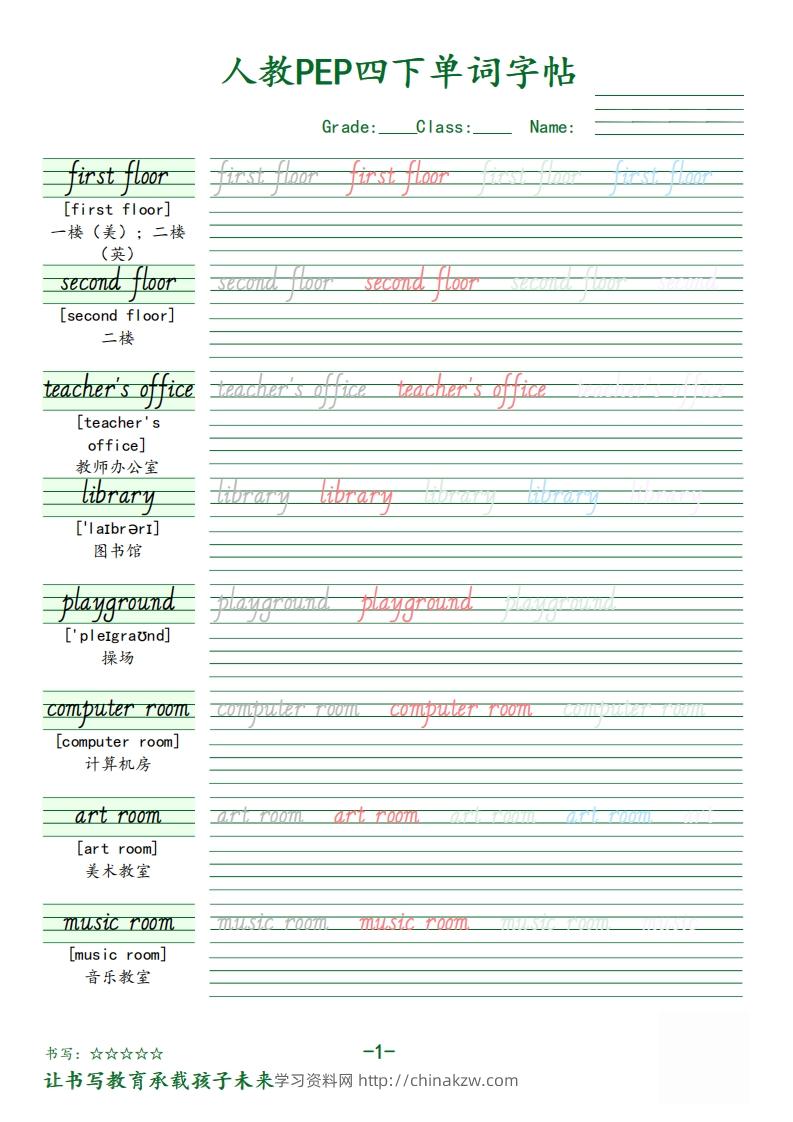 人教PEP四下单词字帖
Grade:____Class:____ Name:
first floor first floor first floor first floor first floor
[first floor]
一楼（美）；二楼
（英）
second floor second floor second floor second floor second
[second floor]
二楼
teacher's office teacher's office teacher's office teacher's office
[teacher's
office]
教师办公室
library library library library library library
[ˈlaɪbrərɪ]
图书馆
playground playground playground playground
[ˈpleɪgraʊnd]
操场
computer room computer room computer room computer room
[computer room]
计算机房
art room art room art room art room art room art
[art room]
美术教室
music room music room music room music room music
[music room]
音乐教室
书写：☆☆☆☆☆
-1-
让书写教育承载孩子未来学习资料网 http://chinakzw.com